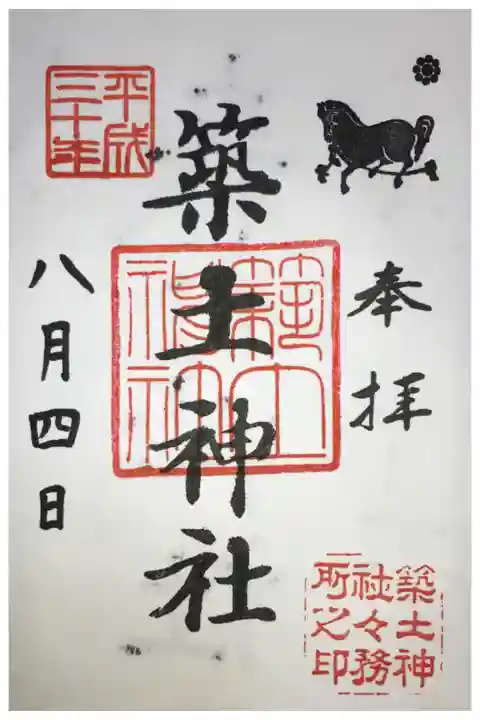 奉拝
築土神社
築土神社
平成三十年
八月四日
築土神
社々務
所之印